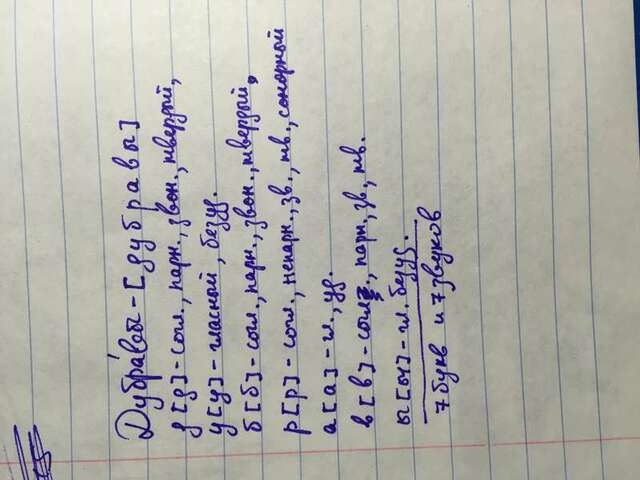 Дубра́вы - [дубравы]
д [д] - согл., парн., звон., твердый,
у [у] - гласной, безуд.
б [б] - согл., парн., звон., твердый,
р [р] - согл., непарн., зв., тв., сонорный
а [а] - гл., уд.
в [в] - согл., парн., зв., тв.
ы [ы] - гл. безуд.
7 букв и 7 звуков